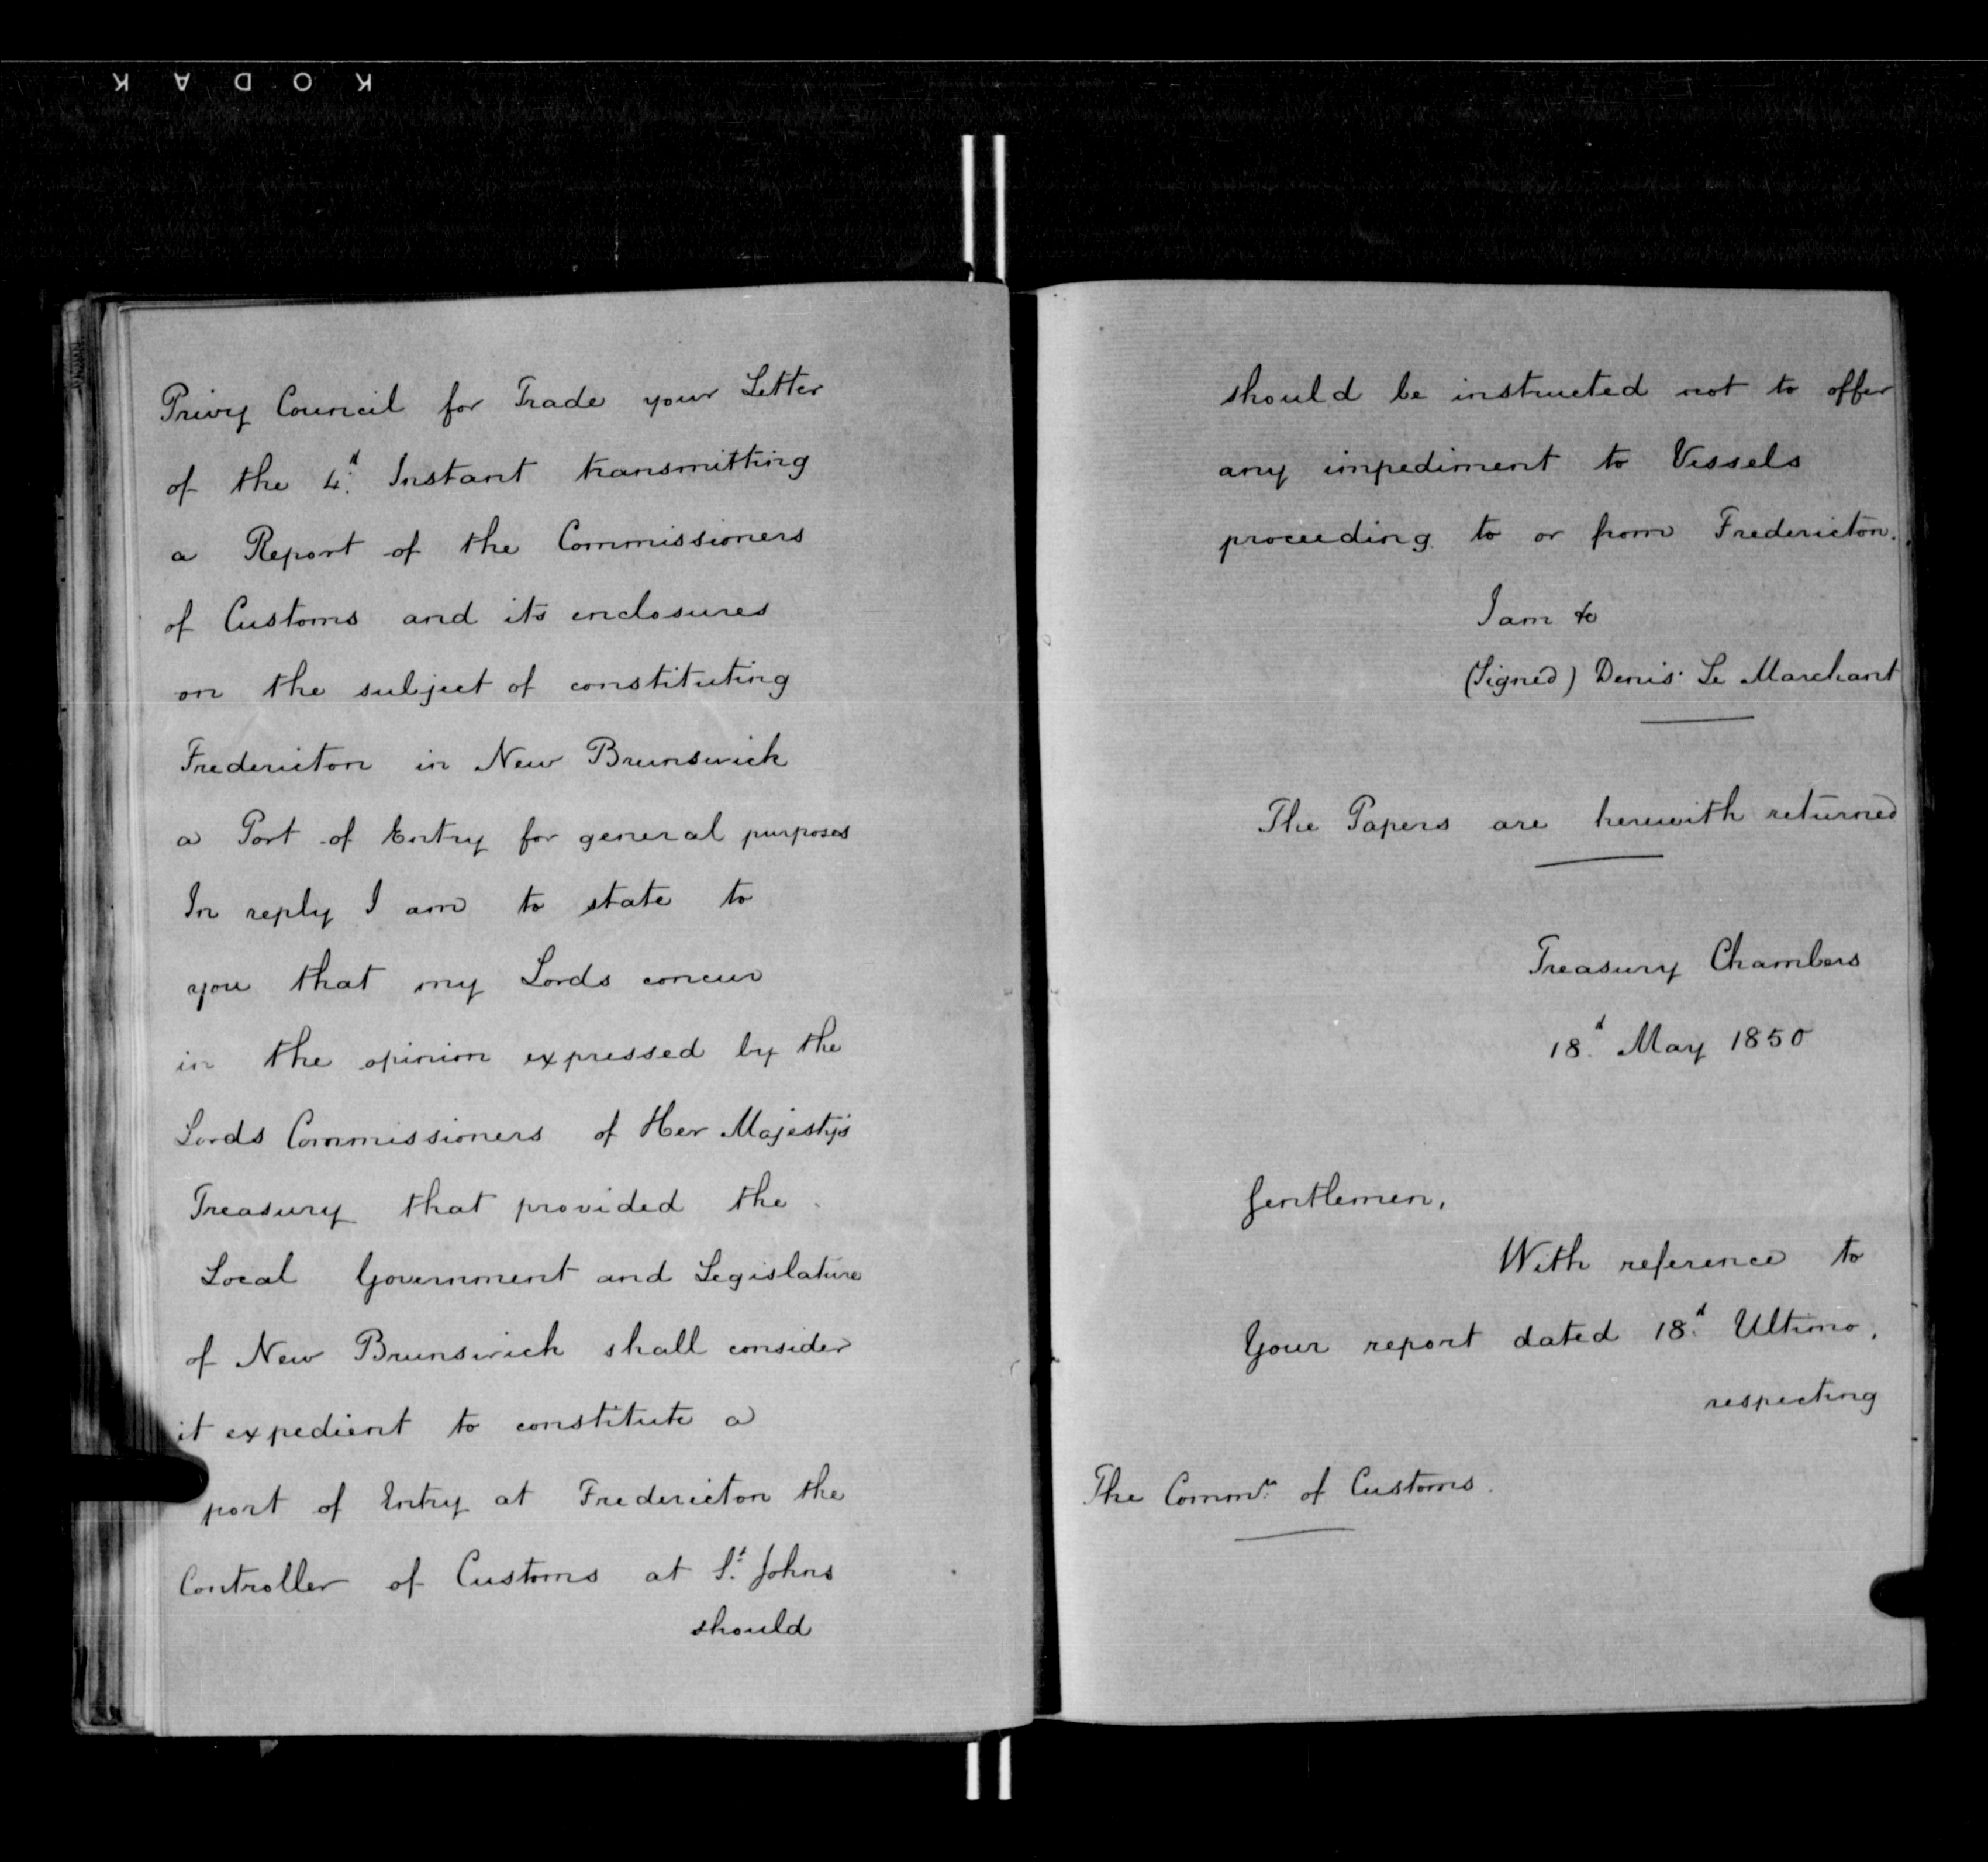 KODAK
Privy Council for Trade your Letter
of the 4.d Instant transmitting
a Report of the Commissioners
of Customs and its enclosures
on the subject of constituting
Fredericton in New Brunswick
a Port of Entry for general purposes
In reply I am to state to
you that my Lords concur
in the opinion expressed by the
Lords Commissioners of Her Majesty's
Treasury that provided the
Local Government and Legislature
of New Brunswick shall consider
it expedient to constitute a
port of Entry at Fredericton the
Controller of Customs at St. Johns
should
should be instructed not to offer
any impediment to Vessels
proceeding to or from Fredericton.
I am &c
(Signed) Denis Le Marchant
The Papers are herewith returned
Treasury Chambers
18.d May 1850
Gentlemen,
With reference to
Your report dated 18.d Ultimo,
respecting
The Commrs. of Customs.